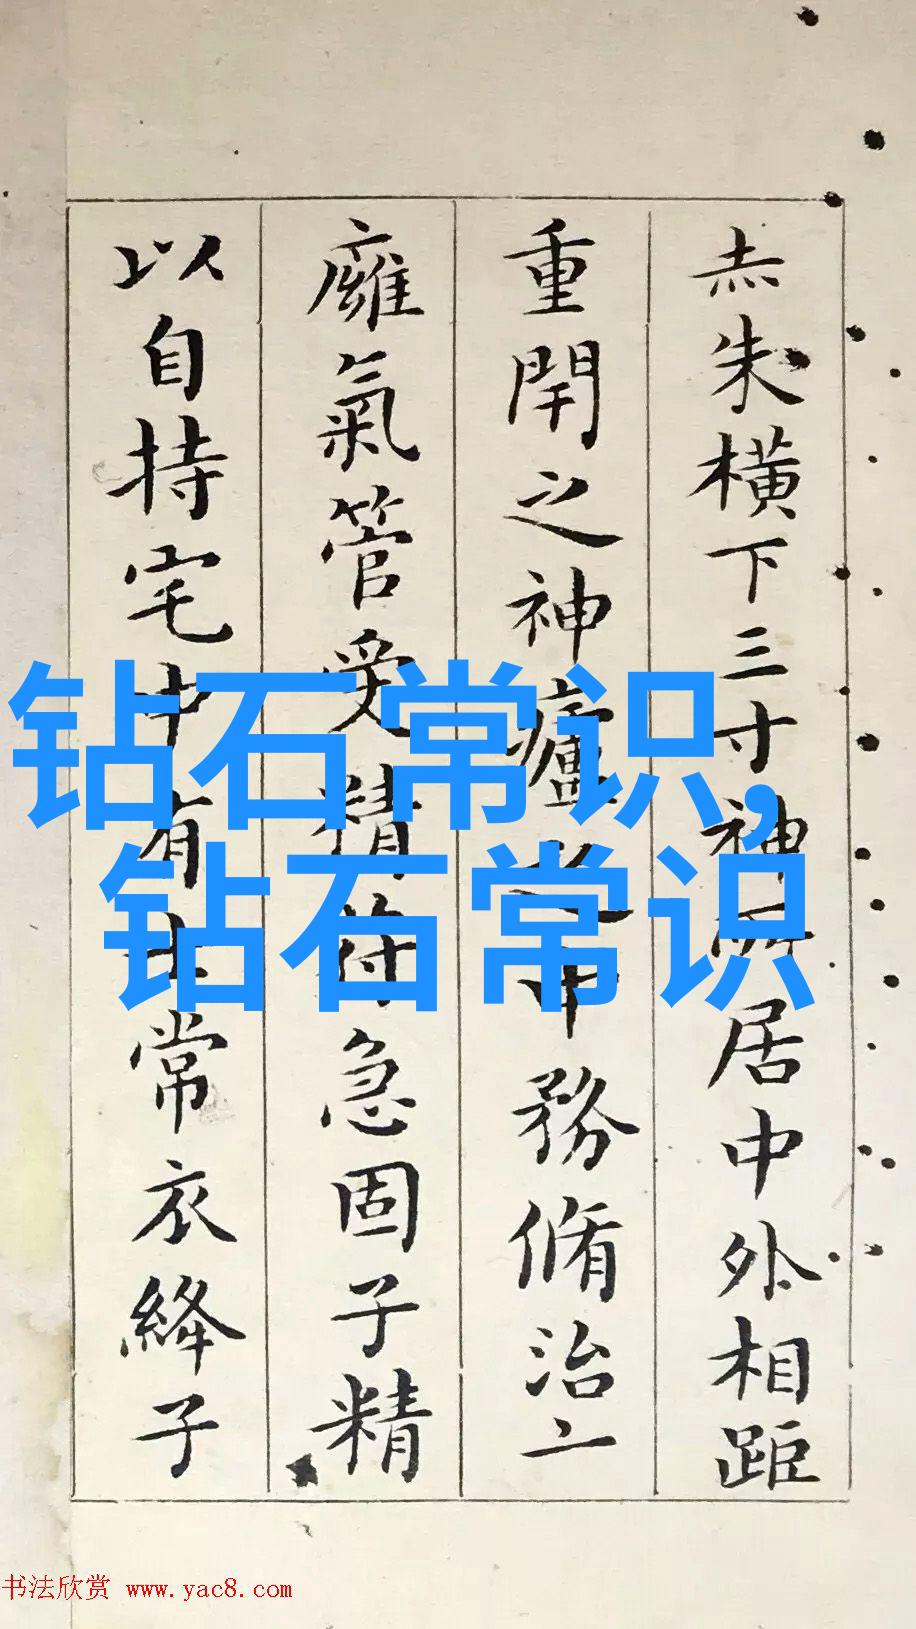 赤朱橫下三寸神所居中外相距
重閈之神廬之中務脩治二
廱氣管受精符急固子精
以自持宅中有士常衣絳子
钻石常识,
钻石常识
书法欣赏 www.yac8.com